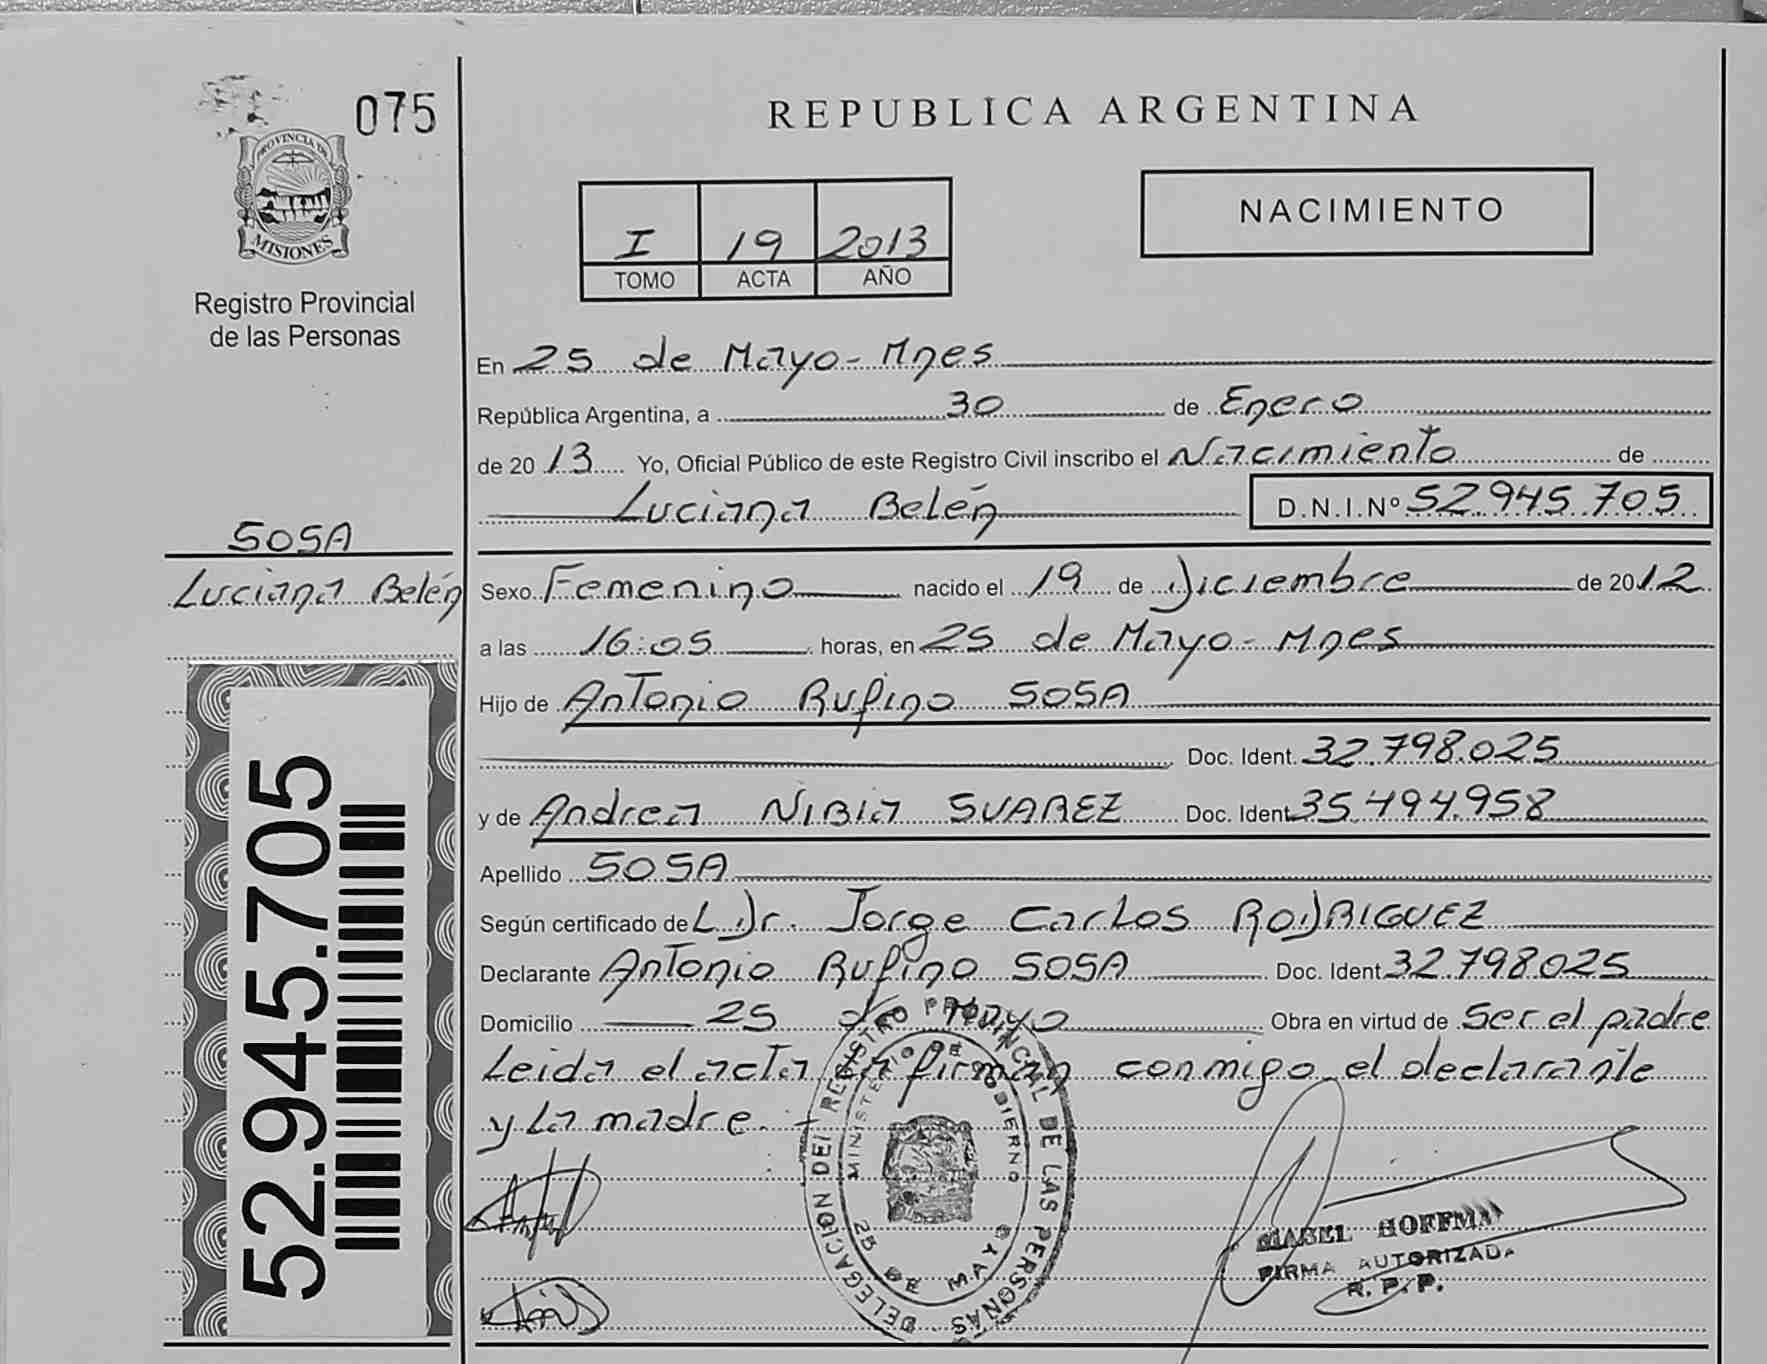 075
PROVINCIA DE
MISIONES
Registro Provincial
de las Personas
SOSA
Luciana Belén
52.945.705
REPUBLICA ARGENTINA
NACIMIENTO
I 19 2013
TOMO ACTA AÑO
En 25 de Mayo - Mnes
República Argentina, a 30 de Enero
de 2013 Yo, Oficial Público de este Registro Civil inscribo el Nacimiento de
Luciana Belén D.N.I.Nº 52.945.705
Sexo Femenino nacido el 19 de Diciembre de 2012
a las 16:05 horas, en 25 de Mayo - Mnes
Hijo de Antonio Rufino SOSA
Doc. Ident. 32.798.025
y de Andrea NIBIA SUAREZ Doc. Ident 35.494.958
Apellido SOSA
Según certificado de L Dr. Jorge Carlos RODRIGUEZ
Declarante Antonio Rufino SOSA Doc. Ident 32.798025
Domicilio 25 de Mayo Obra en virtud de Ser el padre
Leida el acta la firman conmigo el declarante
y la madre.
DELEGACION DEL REGISTRO PROVINCIAL DE LAS PERSONAS
MINISTERIO DE GOBIERNO
25 DE MAYO
MABEL HOFFMAN
FIRMA AUTORIZADA
R. P. P.